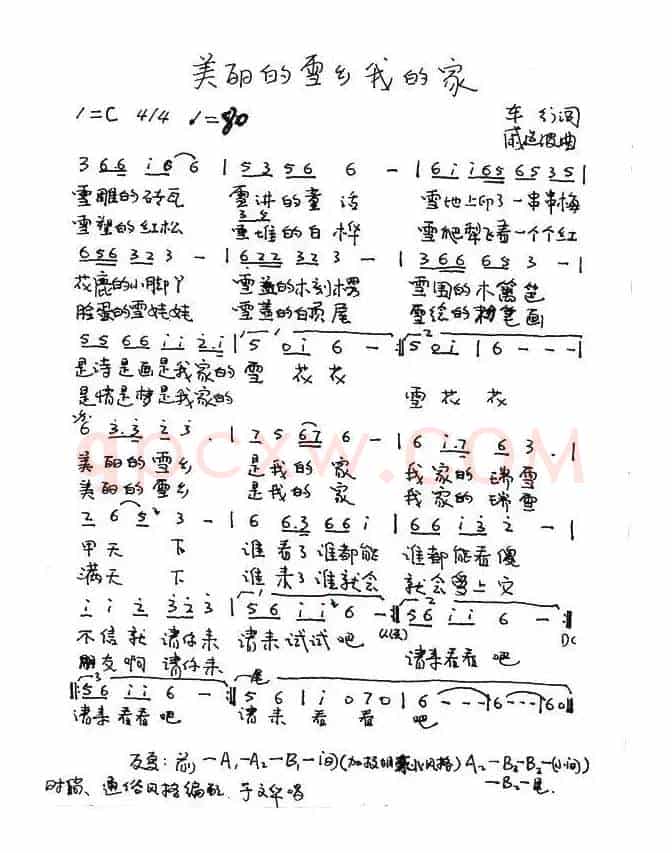 美丽的雪乡我的家
1=C 4/4 ♩=80
车行词
戚建波曲
3 6 6 i 6 6 | 5 3 5 5 6 6 - | 6 i i 6 5 6 5 3 5 |
雪雕的砖瓦 雪讲的童话 雪地上印了一串串梅
雪塑的红松 雪堆的白桦 雪爬犁飞着一个个红
6 5 6 3 2 3 - | 6 2 2 3 2 3 - | 3 6 6 6 5 3 - |
花鹿的小脚丫 雪盖的木刻楞 雪围的木篱笆
脸蛋的雪娃娃 雪盖的白顶尾 雪绘的粉笔画
5 5 6 6 i i 2 i | 5 0 i 6 - :‖ 5 0 i | 6 - - - |
是诗是画是我家的 雪花花
是情是梦是我家的 雪花花
6 3 3 2 3 | 7 5 6 7 6 - | 6 i 7 6 3 . |
美丽的雪乡 是我的家 我家的瑞雪
美丽的雪乡 是我的家 我家的瑞雪
2 6 5 3 - | 6 6 3 6 6 i | 6 6 i 3 2 - |
甲天下 谁看了谁都能 谁都能看傻
满天下 谁来了谁就会 就会爱上它
i i 2 3 2 3 | 5 6 i i 6 - | 5 6 i i 6 - :‖
不信就请你来 请来试试吧
DC
朋友啊请你来 请来看看吧
‖: 5 6 i i 6 - :‖ 尾 5 6 i | i 0 7 0 | 6 - - - | 6 - - - | 6 0 ‖
请来看看吧 请来看看吧
反复：前 — A₁ — A₂ — B₁ — 间 A₂ — B₂ — B₂ — (小间)
— B₂ — 尾
时尚、通俗风格编配 于文华唱
qpcxw.COM